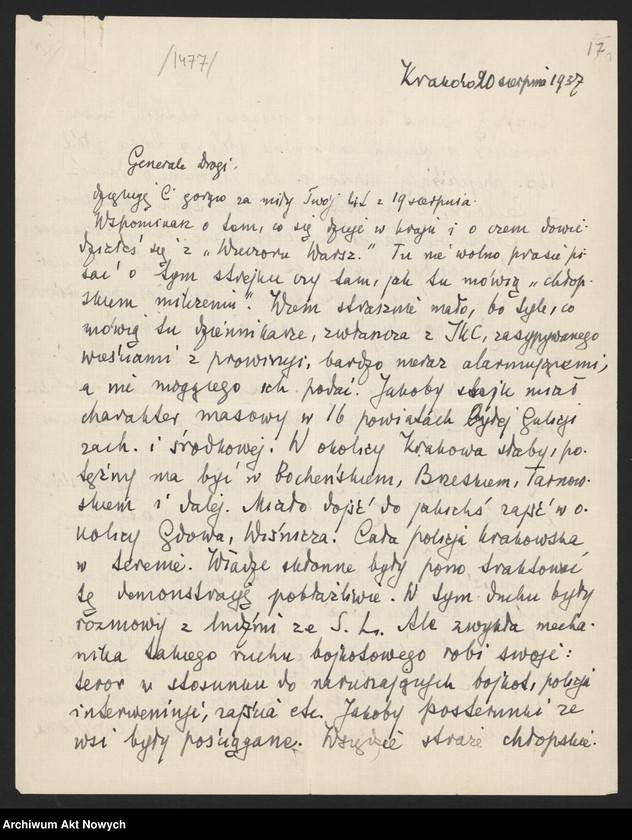 17
/1477/
Kraków 20 sierpnia 1937
Generale Drogi,
dziękuję Ci gorąco za miły Twój list z 19 sierpnia.
Wspominasz o tem, co się dzieje w kraju i o czem dowie-
działeś się z „Wieczoru Warsz." Tu nie wolno prasie pi-
sać o tym strejku czy tam, jak tu mówią „chłop-
skiem milczeniu". Wiem strasznie mało, bo tyle, co
mówią tu dziennikarze, zwłaszcza z IKC, zasypywanego
wieściami z prowincji, bardzo nieraz alarmującemi,
a nie mogącego ich podać. Jakoby strejk miał
charakter masowy w 16 powiatach byłej Galicji
zach. i środkowej. W okolicy Krakowa słaby, po-
tężny ma być w Bocheńskiem, Brzeskiem, Tarnow-
skiem i dalej. Miało dojść do jakichś zajść w o-
kolicy Gdowa, Wiśnicza. Cała policja krakowska
w terenie. Władze skłonne były pono traktować
tę demonstrację pobłażliwie. W tym duchu były
rozmowy z ludźmi ze S. L. Ale zwykła mecha-
nika takiego ruchu bojkotowego robi swoje:
teror w stosunku do naruszających bojkot, policja
interweniuje, zajścia etc. Jakoby posterunki ze
wsi były pościągane. Wszędzie straże chłopskie.
Archiwum Akt Nowych